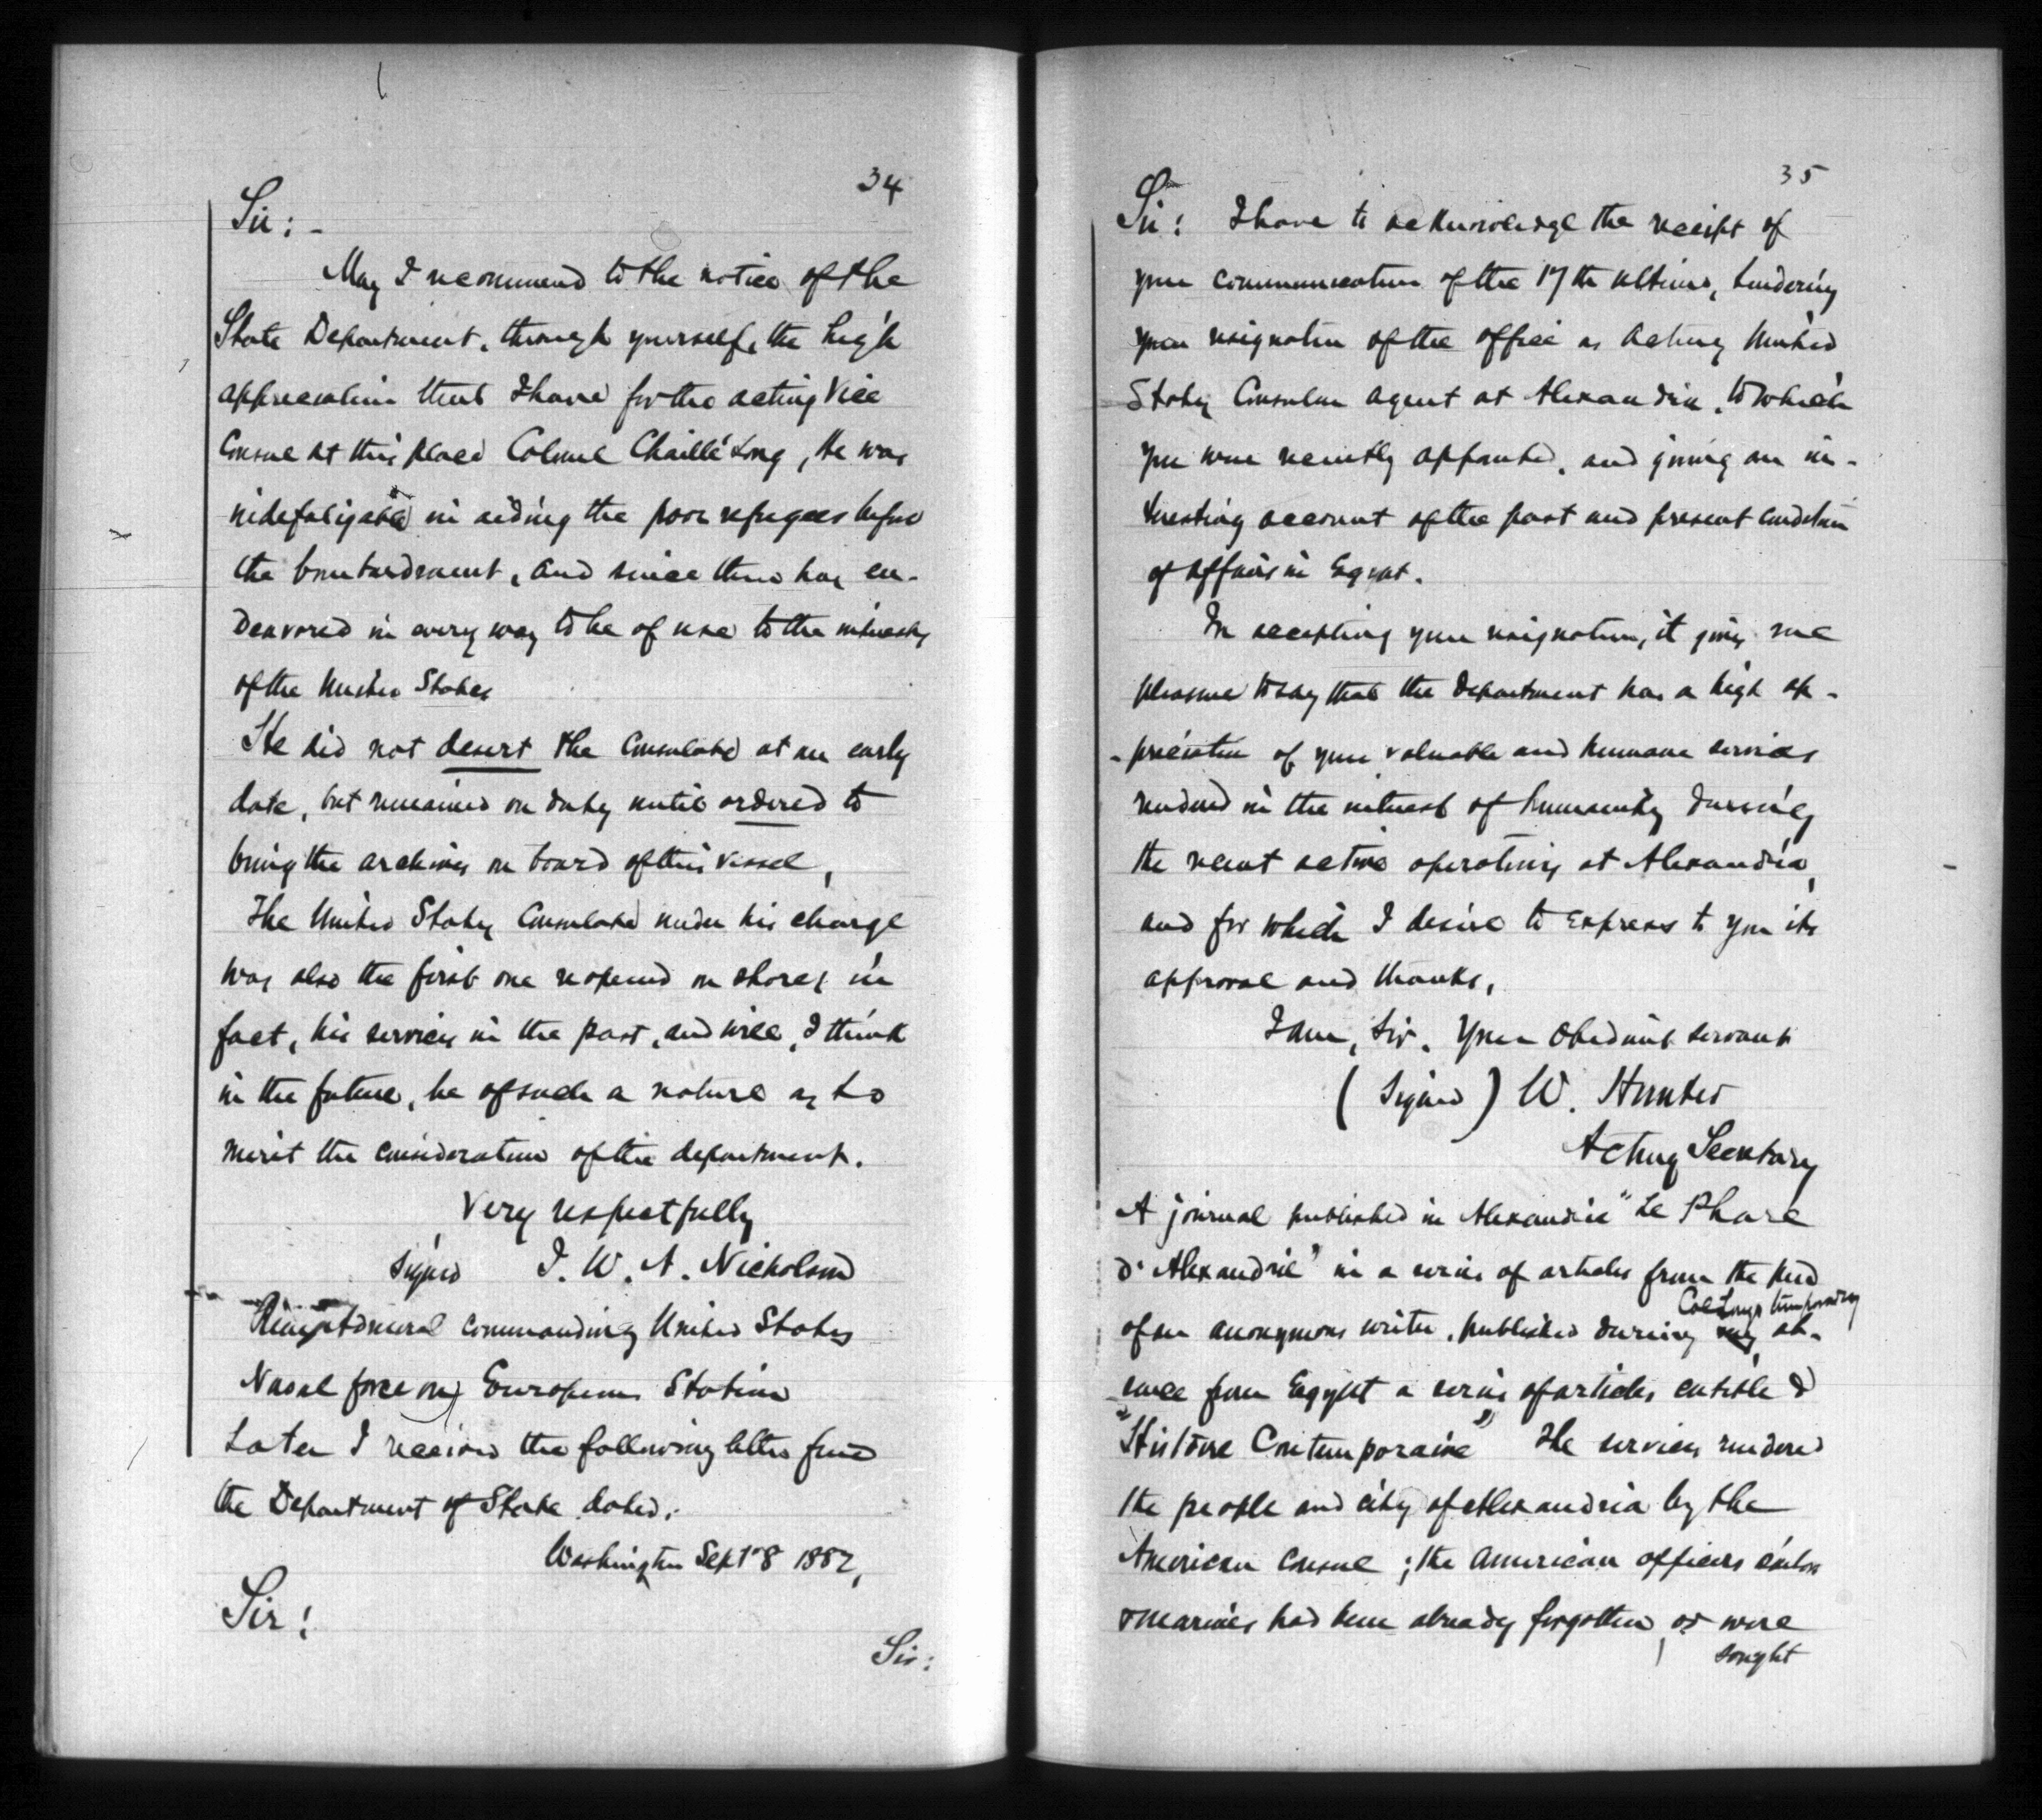 34
Sir: -
May I recommend to the notice of the
State Department, through yourself, the high
appreciation that I have for the acting Vice
Consul at this place Colonel Chaillé Long, He was
indefatigable in aiding the poor refugees before
the bombardment, and since then has en-
deavored in every way to be of use to the interests
of the United States
He did not desert the Consulate at an early
date, but remained on duty until ordered to
bring the archives on board of this vessel,
The United States Consulate under his charge
was also the first one reopened on shore; in
fact, his services in the past, and will, I think
in the future, be of such a nature as to
merit the consideration of the department.
Very respectfully
Signed J. W. A. Nicholson
Rear Admiral commanding United States
Naval force on European Station
Later I received the following letter from
the Department of State dated.
Washington Sept 8 1882,
Sir!
Sir:
35
Sir: I have to acknowledge the receipt of
your communication of the 17th ultimo, tendering
your resignation of the office as Acting United
States Consular agent at Alexandria, to which
you were recently appointed, and giving an in-
teresting account of the past and present condition
of affairs in Egypt.
In accepting your resignation, it gives me
pleasure to say that the Department has a high ap-
-preciation of your valuable and humane services
rendered in the interest of humanity during
the recent active operations at Alexandria,
and for which I desire to express to you its
approval and thanks,
I am, Sir, Your Obedient servant
(Signed) W. Hunter
Acting Secretary
A journal published in Alexandria "Le Phare
d'Alexandrie" in a series of articles from the pen
Col Longs temporary
of an anonymous writer, published during my ab-
sence from Egypt a series of articles entitled
"Histoire Contemporaine" The services rendered
the people and city of Alexandria by the
American Consul; the American officers sailors
& marines had been already forgotten, or were
sought